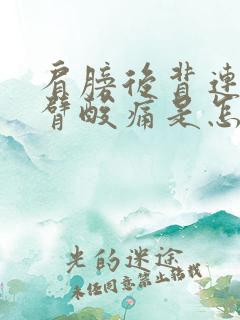 肩膀后背连
臂酸痛是怎
光的迷途
未经同意禁止转载